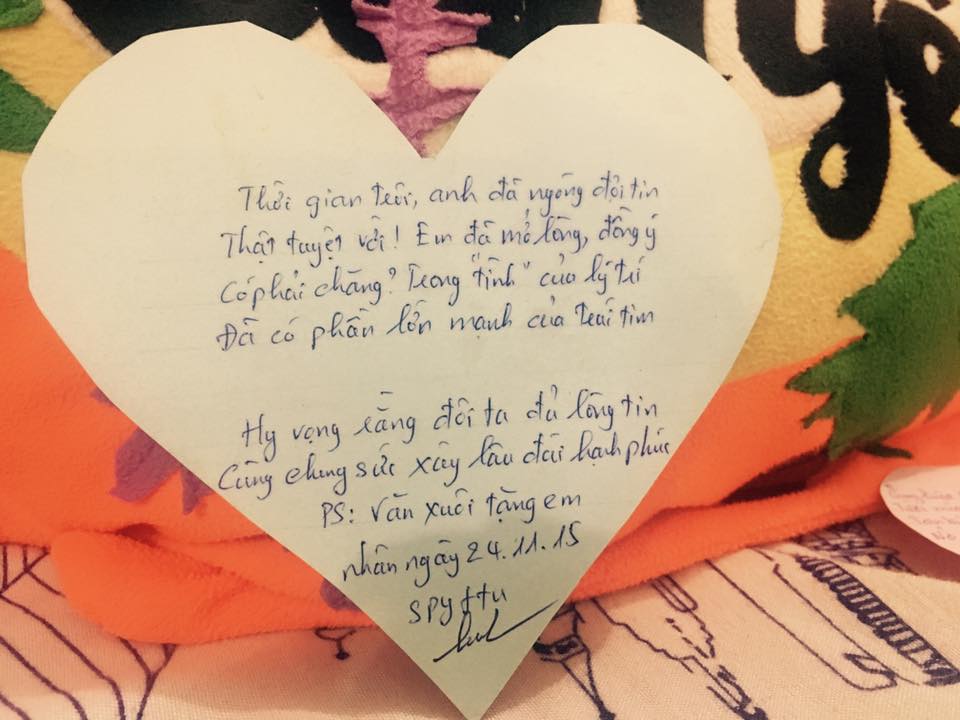 yê
Thời gian trôi, anh đã ngóng đợi tin
Thật tuyệt vời! Em đã mở lòng, đồng ý
Có phải chăng? Trong "tình" của lý trí
Đã có phần lớn mạnh của trái tim
Hy vọng rằng đôi ta đủ lòng tin
Cùng chung sức xây lâu đài hạnh phúc
PS: Văn xuôi tặng em
nhân ngày 24.11.15
SPY ttu